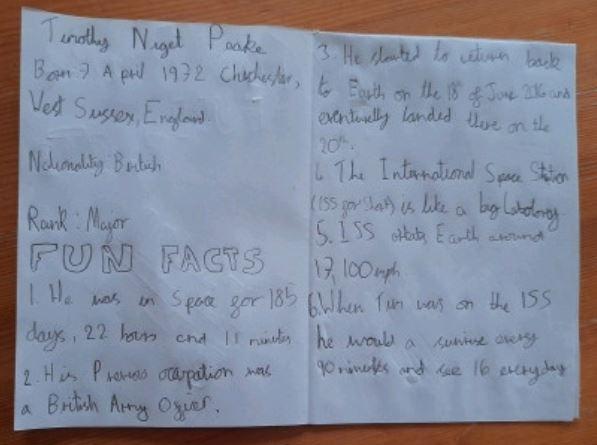 Timothy Niget Peake
Born 7 April 1972 Chichester,
West Sussex, England.
Nationality: British
Rank: Major
FUN FACTS
1. He was in Space for 185
days, 22 hours and 11 minutes
2. His Previous ocupation was
a British Army Officer.
3. He started to return back
to Earth on the 18th of June 2016 and
eventually landed there on the
20th.
4. The International Space Station
(ISS for short) is like a big
5. ISS orbits Earth around
17,100mph
6. When Tim was on the ISS
he would a sunrise every
90 minutes and see 16 everyday